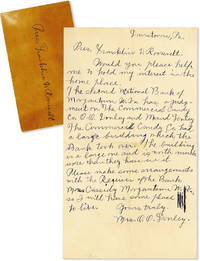 Pres Franklin D Roosevelt
Uniontown, Pa.
Pres. Franklin D Roosevelt.
Would you please help
me to hold my interest in the
home place.
The Second National Bank of
Morgantown W. Va has a judg-
ment on The Commercial Candy
Co. O.O. Conley and Maud Conley
The Commercial Candy Co. had
a large building which the
Bank took over. The building
is a large one and is worth much
more than they have in it.
Please make some arrangements
with the Receiver of the Bank
Mrs Cassidy Morgantown W. Va.
so I will have some place
to live.
Yours truly
Mrs. O. O. Conley.